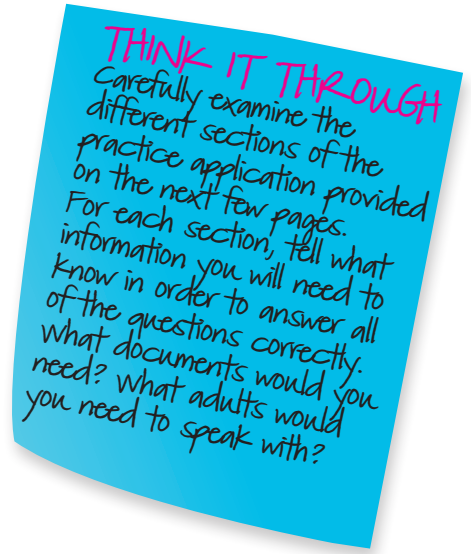 THINK IT THROUGH
Carefully examine the
different sections of the
practice application provided
on the next few pages.
For each section, tell what
information you will need to
know in order to answer all
of the questions correctly.
What documents would you
need? What adults would
you need to speak with?